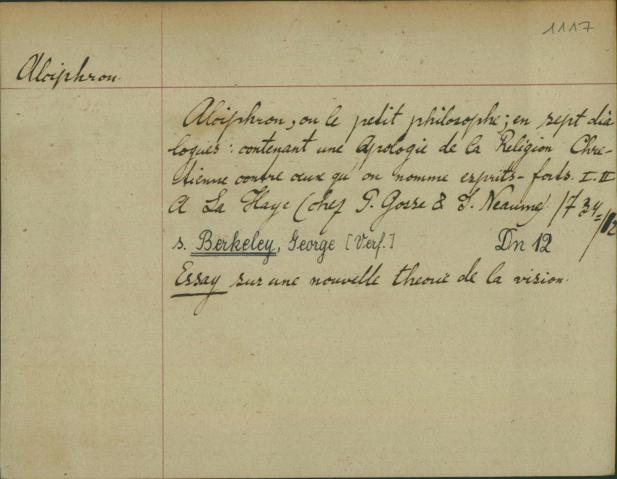 1117
Alciphron.
Alciphron, ou le petit philosophe; en sept dia-
logues: contenant une Apologie de la Religion Chre-
tienne contre ceux qu'on nomme esprits-forts. I-II
A La Haye (chez P. Gosse & J. Neaume) 1734
s. Berkeley, George [Verf.] Dn 12
Essay sur une nouvelle theorie de la vision.